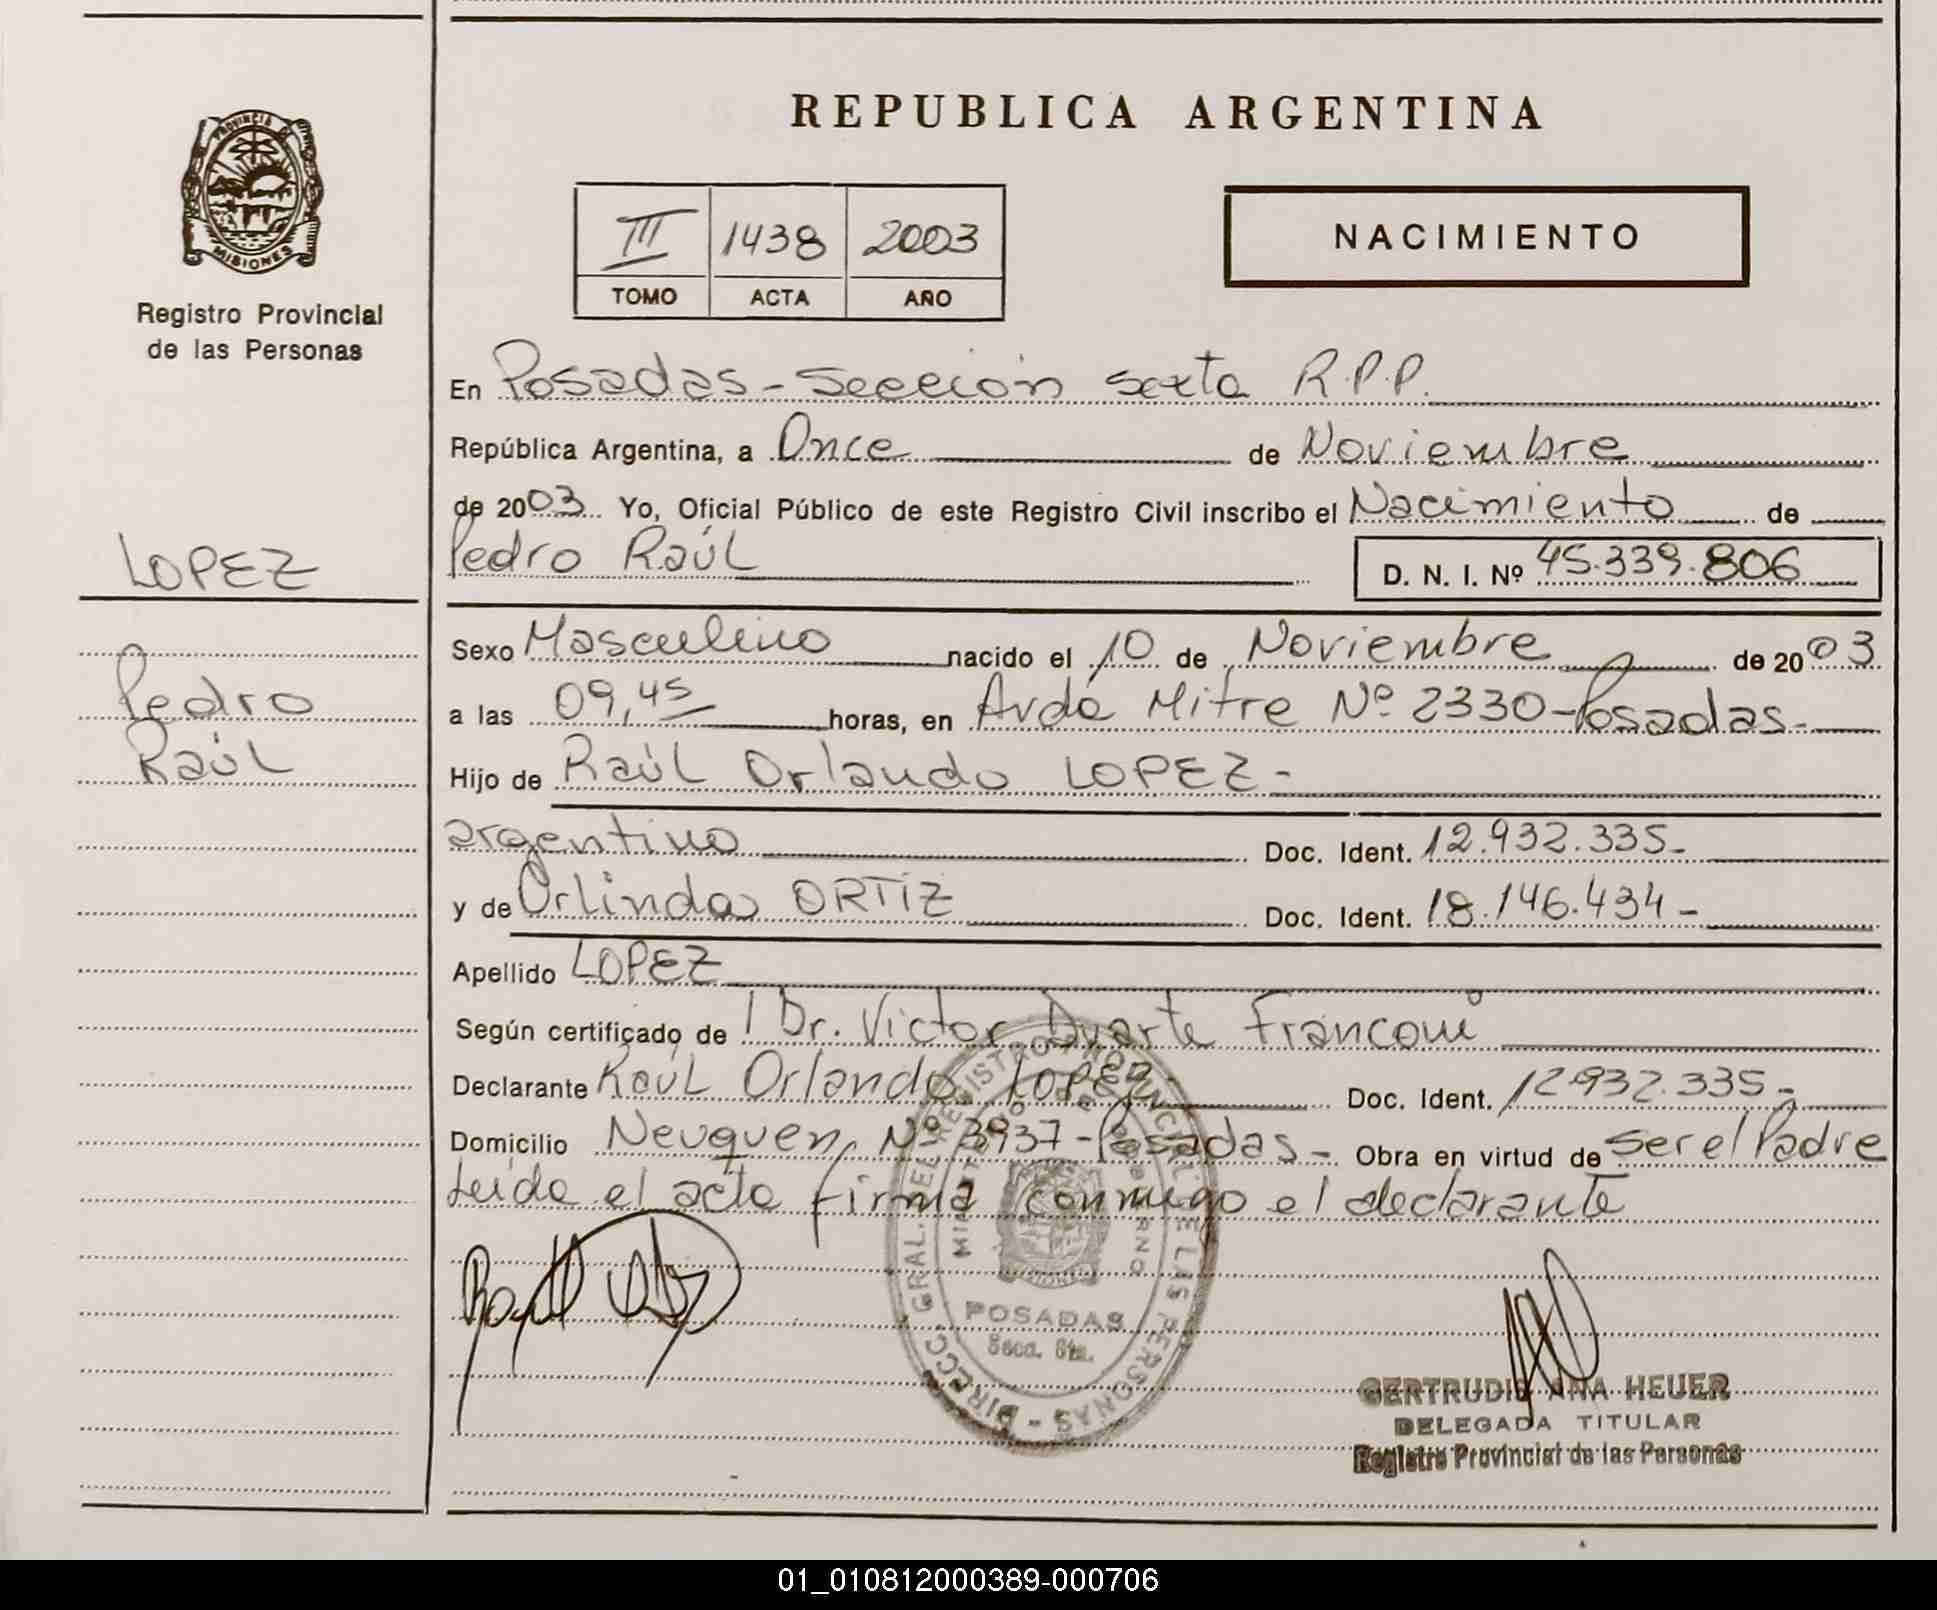 PROVINCIA DE
MISIONES
Registro Provincial
de las Personas
LOPEZ
Pedro
Raúl
REPUBLICA ARGENTINA
III 1438 2003
TOMO ACTA AÑO
NACIMIENTO
En Posadas - Sección sexta R.P.P.
República Argentina, a Once de Noviembre
de 2003 Yo, Oficial Público de este Registro Civil inscribo el Nacimiento de
Pedro Raúl D. N. I. Nº 45.339.806
Sexo Masculino nacido el 10 de Noviembre de 2003
a las 09,45 horas, en Avda Mitre Nº 2330 - Posadas.-
Hijo de Raúl Orlando LOPEZ -
argentino Doc. Ident. 12.932.335-
y de Orlinda ORTIZ Doc. Ident. 18.146.434-
Apellido LOPEZ
Según certificado de Dr. Victor Duarte Franconi
Declarante Raúl Orlando LOPEZ- Doc. Ident. 12.932.335-
Domicilio Neuquen Nº 3937 - Posadas - Obra en virtud de ser el Padre
Leida el acta firma conmigo el declarante
DIRECC. GRAL. DEL REGISTRO PROVINCIAL DE LAS PERSONAS -
MINISTERIO DE GOBIERNO
POSADAS
Secc. 6ta.
GERTRUDIS ANA HEUER
DELEGADA TITULAR
Registro Provincial de las Personas
01_010812000389-000706